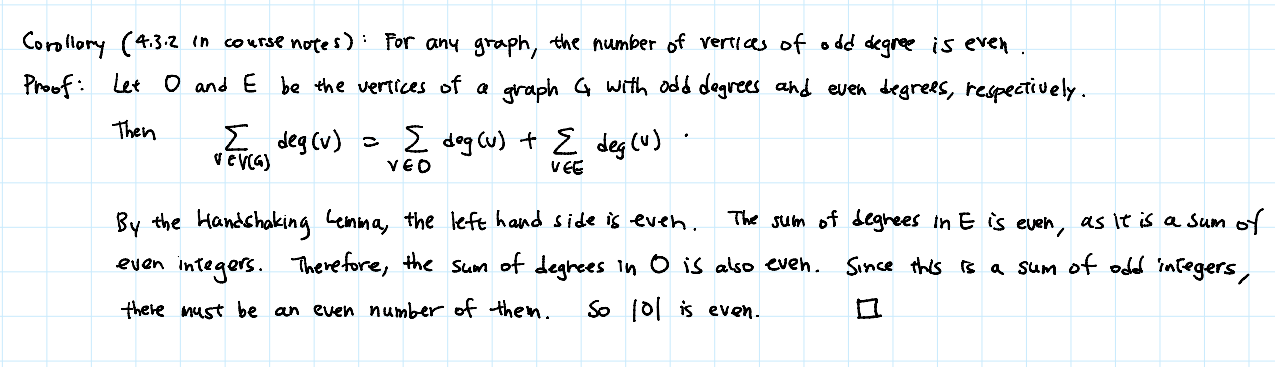 Corollory (4.3.2 in course notes): For any graph, the number of vertices of odd degree is even.
Proof: Let O and E be the vertices of a graph G with odd degrees and even degrees, respectively.
Then ∑_{v∈V(G)} deg(v) = ∑_{v∈O} deg(v) + ∑_{v∈E} deg(v).
By the Handshaking Lemma, the left hand side is even. The sum of degrees in E is even, as it is a sum of
even integers. Therefore, the sum of degrees in O is also even. Since this is a sum of odd integers,
there must be an even number of them. So |O| is even. □